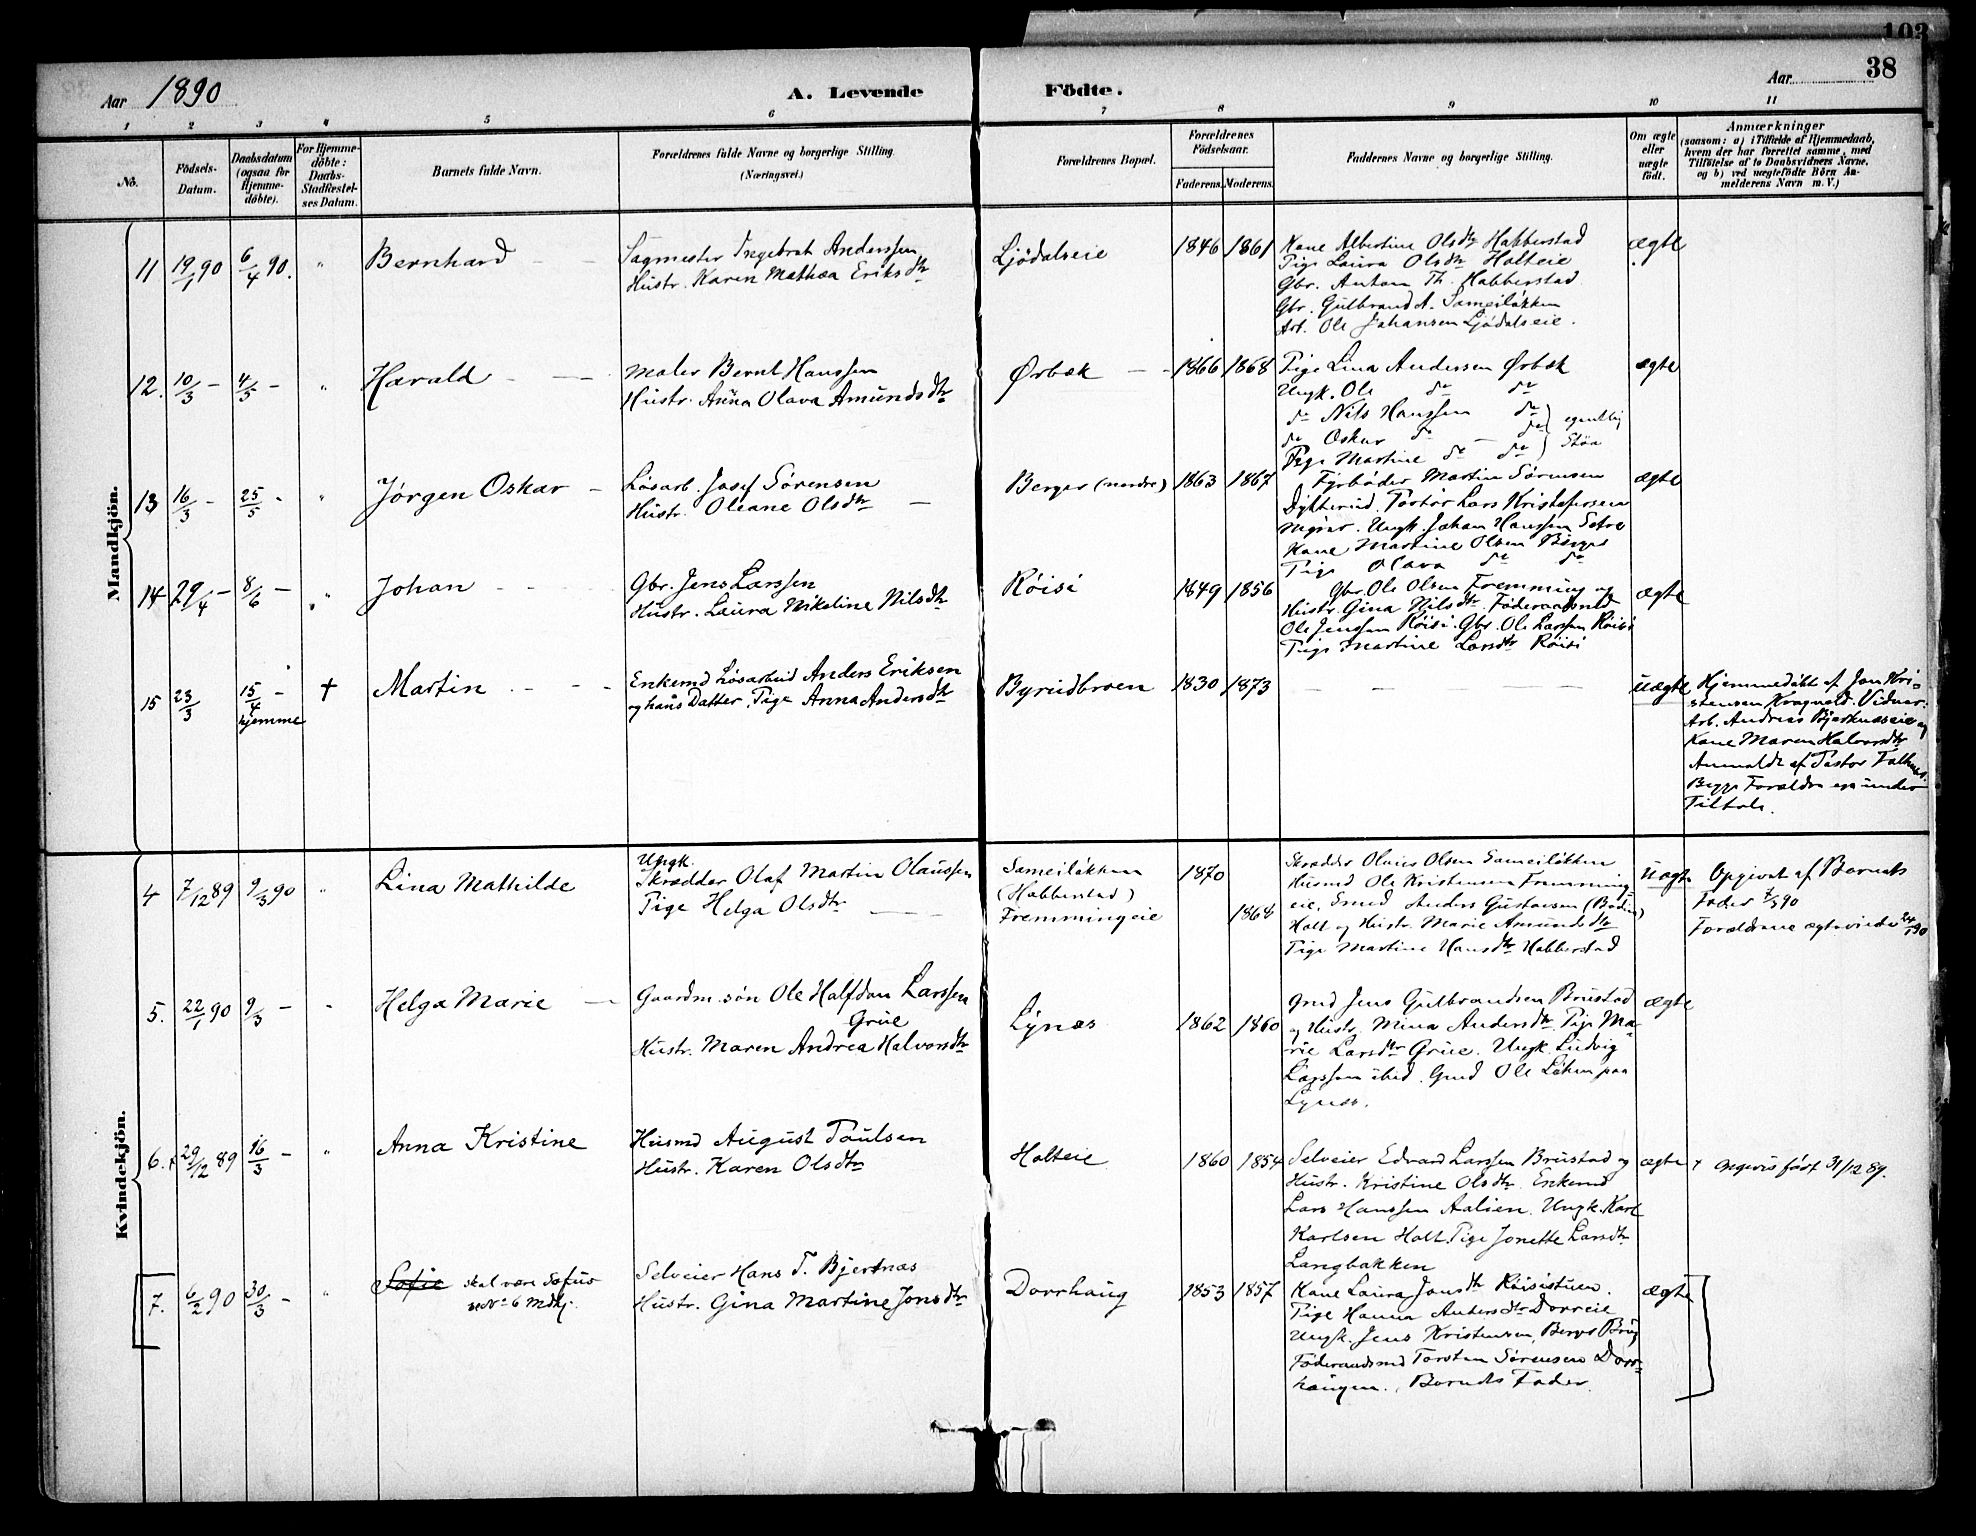 103
38
Aar 1890
A. Levende Födte.
Aar
1 2 3 4 5 6 7 8 9 10 11
No.
Födsels-Datum.
Daabsdatum (ogsaa for Hjemme-döbte).
For Hjemme-döbte: Daabs-Stadfæstel-ses Datum.
Barnets fulde Navn.
Forældrenes fulde Navne og borgerlige Stilling. (Næringsvei.)
Forældrenes Bopæl.
Forældrenes Födselsaar.
Faderens. Moderens.
Faddernes Navne og borgerlige Stilling.
Om ægte eller uægte födt.
Anmærkninger
(saasom: a) i Tilfælde af Hjemmedaab, hvem der har forrettet samme, med Tilföielse af to Daabsvidners Navne, og b) ved uægtefödte Börn An-melderens Navn m. V.)
Mandkjön.
11 19/1 90 6/4 90. " Bernhard
Sagmester Ingebret Anderssen
Hustr. Karen Mathea Eriksdtr
Ljödalseie 1846 1861
Kone Albertine Olsdtr Habberstad
Pige Laura Olsdtr Holteie
Gbr. Anton Th. Habberstad
Gbr. Gulbrand A. Sameiløkken
Arb. Ole Johansen Ljödalseie.
ægte
12. 10/3 – 4/5 – " Harald
Maler Bernt Hanssen
Hustr. Anna Olava Amundsdtr
Ørbæk 1866 1868
Pige Lina Andersen Ørbæk
Ungk. Ole do do
do Nils Hanssen do
do Oskar do – do } egentlig Støa
Pige Martine do do
ægte
13 16/3 – 25/5 – " Jørgen Oskar
Løsarb. Josef Sørensen
Hustr. Oleane Olsdtr
Berger (nordre) 1863 1867
Fyrbøder Martin Sørensen
Lars Kristofersen
Ungk. Johan Hanssen
Kone Martine Olsen Berger
Pige Olava do do
ægte
14 29/4 – 8/6 – " Johan
Gbr. Jens Larssen
Hustr. Laura Nikoline Nilsdtr
Röisi 1849 1856
Gbr. Ole Olsen Fremming og
Hustr. Gina Nilsdtr. Föderaadsmd
Ole Jenssen Röisi. Gbr. Ole Larssen Röisi
Pige Martine Larsdtr Röisi
ægte
15 23/3 15/4 – hjemme † Martin
Enkemd Løsarbeid Anders Eriksen
og hans Datter, Pige Anna Andersdtr
Byrudbroen 1830 1873
uægte
Hjemmedöbt af Jon Kri-
stensen Kragvold. Vidner.
Arb. Andreas Bjerknæseie og
Kone Maren Halvorsdtr
Anmeldt af Pastor
Begge Forældre ere under
Tiltale.
Kvindekjön.
4 7/12 89 9/3 90 " Lina Mathilde
Ungk.
Skrædder Olaf Martin Olaussen
Pige Helga Olsdtr
Sameiløkken
(Habberstad)
Fremmingeie
1870
1868
Skrædder Olaus Olsen Sameiløkken
Husmd Ole Kristensen Fremming-
eie, Smed Anders Gustavsen
Holt og Hustr. Marie Amundsdtr
Pige Martine Hansdtr Habberstad
uægte
Opgivet af Barnets
Fader 7/3 90
Forældrene ægteviede
5. 22/1 90 9/3 – " Helga Marie
Gaardm.sön Ole Halfdan Larssen
Grue
Hustr. Maren Andrea Halvorsdtr
Lynæs 1862 1860
Gmd Jens Gulbrandsen Brustad
og Hustr. Mina Andersdtr. Pige Ma-
rie Larsdtr Grue. Ungk. Ludvig
Larssen ibid. Gmd Ole Løken paa
Lynæs.
ægte
6. + 29/12 89 16/3 – " Anna Kristine
Husmd August Paulsen
Hustr. Karen Olsdtr
Holteie 1860 1854
Selveier Edvard Larssen Brustad og
Hustr. Kristine Olsdtr. Enkemd
Lars Hanssen Aalien. Ungk. Karl
Karlsen Holt. Pige Jonette Larsdtr
Langbakken
ægte
+ angivis födt 31/12 89.
7. 6/2 90 30/3 – " Sofie skal være Sofus
se No 6 Mdkj.
Selveier Hans T. Bjertnæs
Hustr. Gina Martine Jonsdtr
Dorrhaug 1853 1857
Kone Laura Jonsdtr Röisistuen.
Pige Hanna Andersdtr Dorreie
Ungk. Jens Kristensen, Bergs
Föderaadsmd Torsten Sørensen Dorr-
haugen. Barnets Fader.
ægte